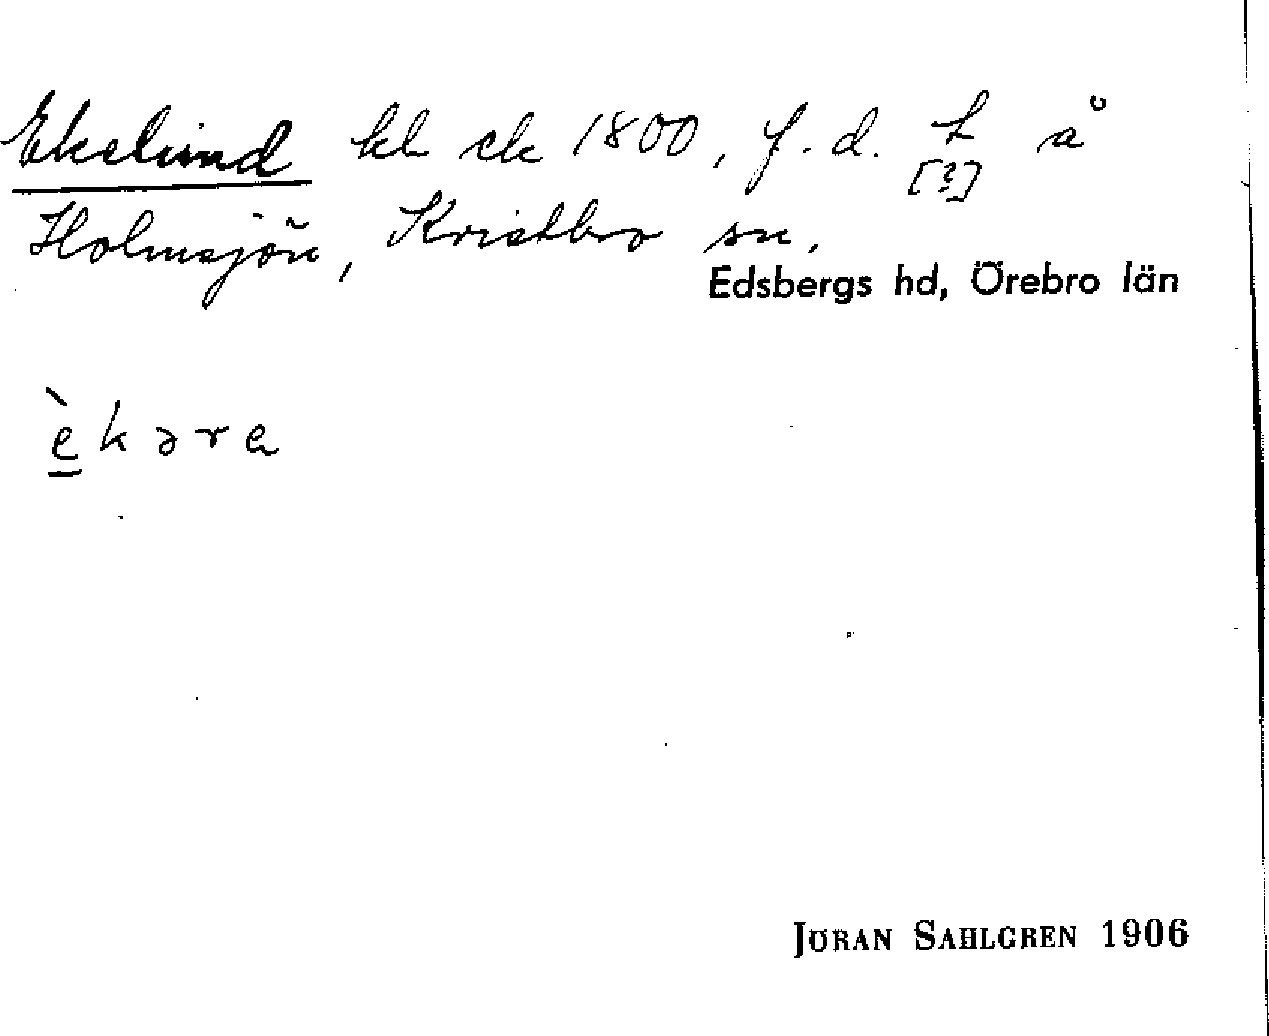 Ekelund kl ck 1800, f. d. t å
[?]
Holmsjön, Kvistbro sn,
Edsbergs hd, Örebro län
èkəra
JÖRAN SAHLGREN 1906